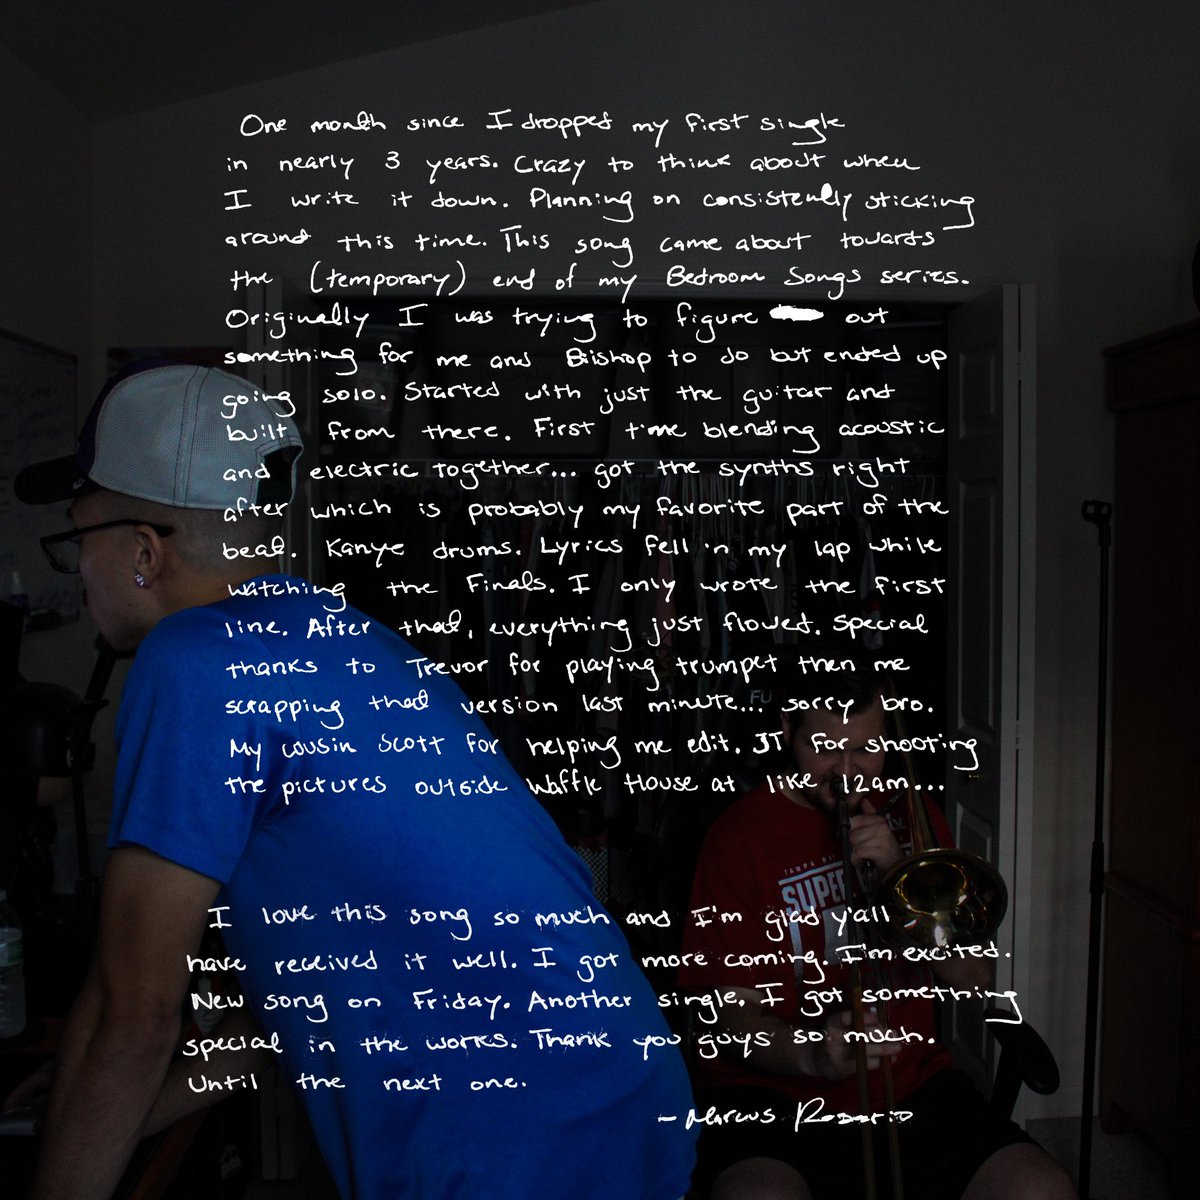 One month since I dropped my first single
in nearly 3 years. Crazy to think about when
I write it down. Planning on consistently sticking
around this time. This song came about towards
the (temporary) end of my Bedroom Songs series.
Originally I was trying to figure out
something for me and Bishop to do but ended up
going solo. Started with just the guitar and
built from there. First time blending acoustic
and electric together... got the synths right
after which is probably my favorite part of the
beat. Kanye drums. Lyrics fell in my lap while
watching the Finals. I only wrote the first
line. After that, everything just flowed. Special
thanks to Trevor for playing trumpet then me
scrapping that version last minute... sorry bro.
My cousin Scott for helping me edit. JT for shooting
the pictures outside Waffle House at like 12am...
I love this song so much and I'm glad y'all
have received it well. I got more coming. I'm excited.
New song on Friday. Another single. I got something
special in the works. Thank you guys so much.
Until the next one.
- Marcus Rosario
FU
TAMPA
SUPER